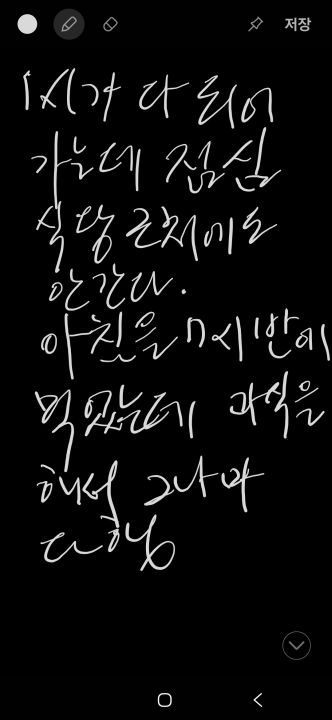 저장
1시가 다 되어
가는데 점심
식당 근처에도
안간다.
아침을 7시 반에
먹었는데 과식을
해서 그나마
다행